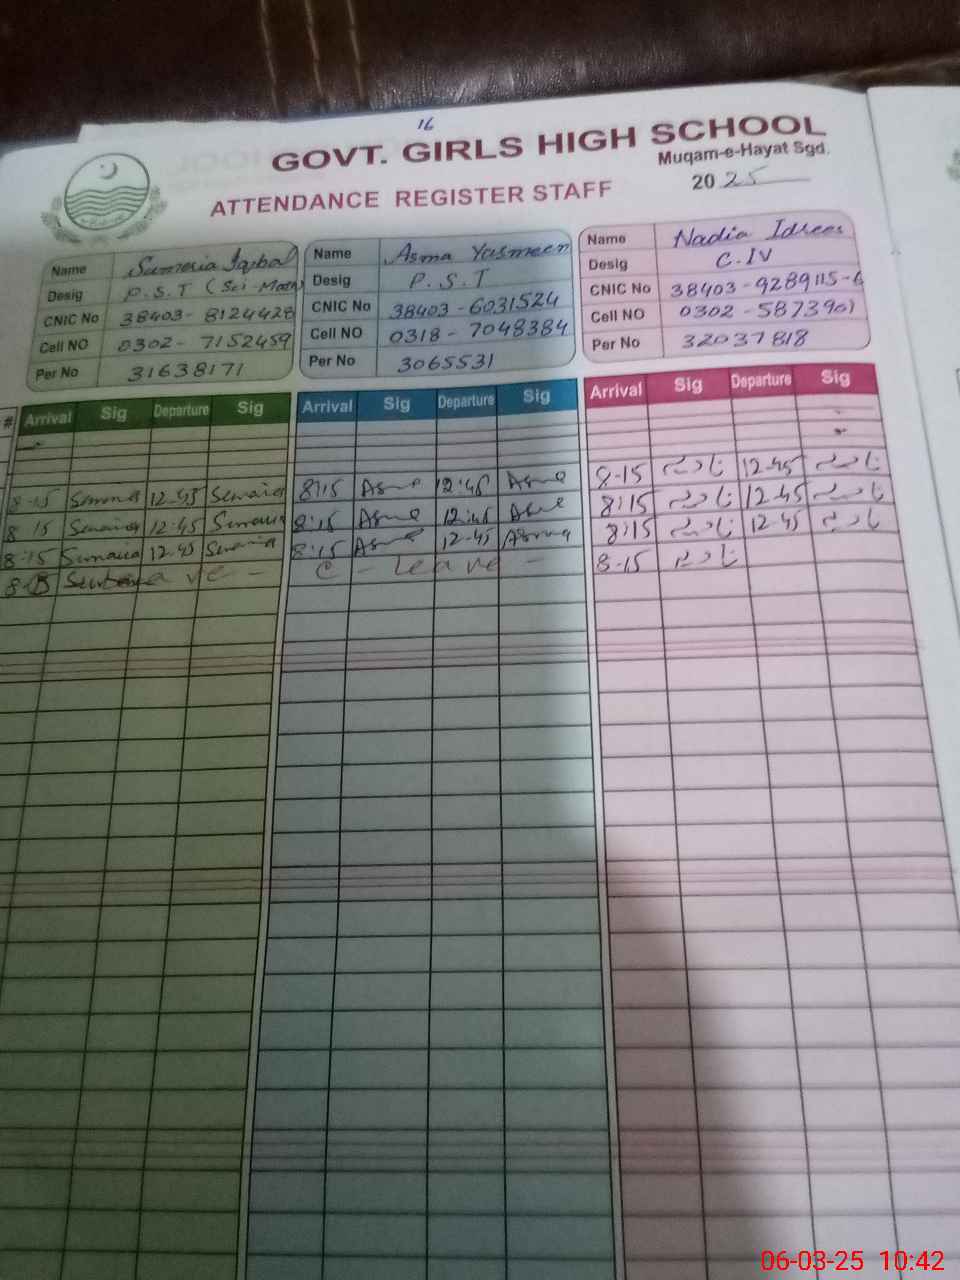 16
GOVT. GIRLS HIGH SCHOOL
Muqam-e-Hayat Sgd.
ATTENDANCE REGISTER STAFF
2025
Name Sumaria Iqbal
Desig P.S.T (Sci-Math)
CNIC No 38403-8124428
Cell NO 0302-7152459
Per No 31638171
Name Asma Yasmeen
Desig P.S.T
CNIC No 38403-6031524
Cell NO 0318-7048384
Per No 3065531
Name Nadia Idrees
Desig C.IV
CNIC No 38403-9289115-6
Cell NO 0302-5873901
Per No 32037818
# Arrival Sig Departure Sig Arrival Sig Departure Sig Arrival Sig Departure Sig
8-15 12-45 8:15 Asma 12:45 Asma 8-15 نادیہ 12-45 نادیہ
8 15 12-45 8:15 Asma 12:45 Asma 8:15 نادیہ 12-45 نادیہ
8:15 Sumaira 12-45 8:15 Asma 12-45 Asma 8:15 نادیہ 12-45 نادیہ
C - Leave - 8-15 نادیہ
06-03-25 10:42